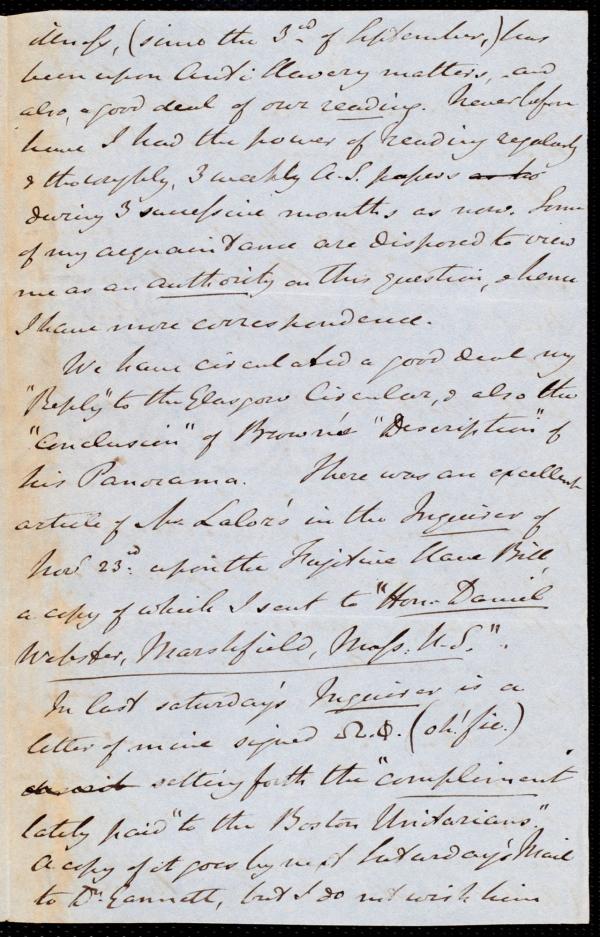 illness, (since the 3rd of September,) has
been upon Anti Slavery matters, and
also, a good deal of our reading. Never before
have I had the power of reading regularly
& thoroughly, 3 weekly A.S. papers
during 3 successive months as now. Some
of my acquaintance are disposed to view
me as an authority on this question, & hence
I have more correspondence.
We have circulated a good deal my
"Reply" to the Glasgow Circular, & also the
"Conclusion" of Brown's "Description" of
his Panorama. There was an excellent
article of Mr Lalor's in the Inquirer of
Nov 23rd upon the Fugitive Slave Bill,
a copy of which I sent to "Hon. Daniel
Webster, Marshfield, Mass: U.S.".
In last saturday's Inquirer is a
letter of mine signed Ω.Φ. (oh! fie.)
setting forth the "compliment
lately paid" to the Boston Unitarians."
A copy of it goes by next Saturday's Mail
to Dr. Gannett, but I do not wish him